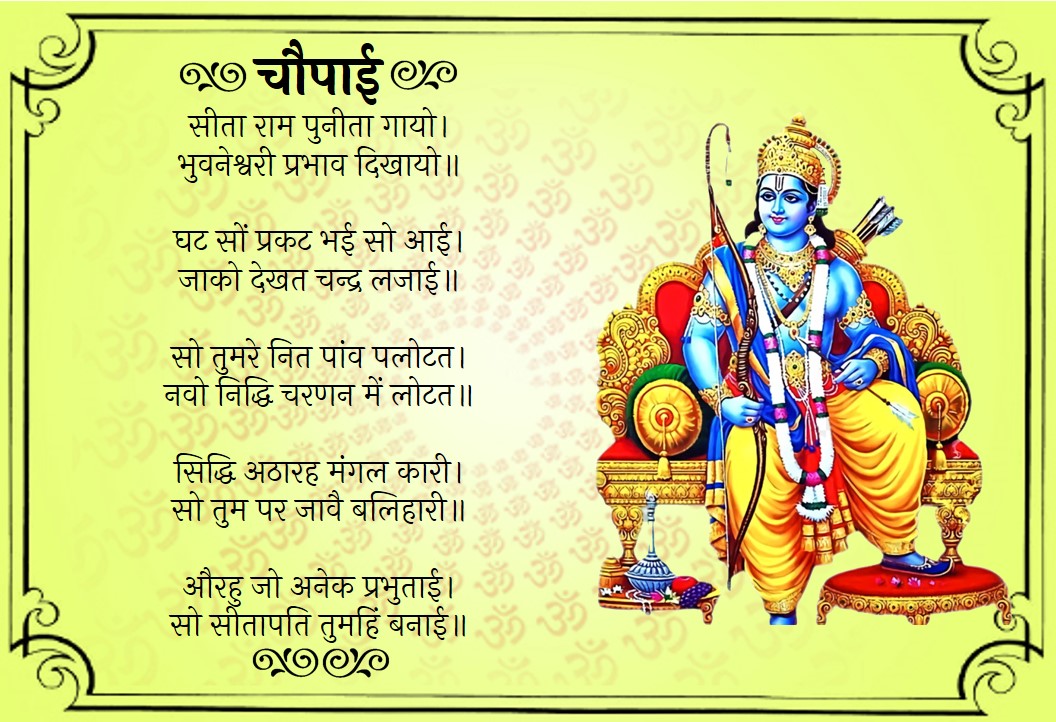 चौपाई
सीता राम पुनीता गायो।
भुवनेश्वरी प्रभाव दिखायो॥
घट सों प्रकट भई सो आई।
जाको देखत चन्द्र लजाई॥
सो तुमरे नित पांव पलोटत।
नवो निद्धि चरणन में लोटत॥
सिद्धि अठारह मंगल कारी।
सो तुम पर जावै बलिहारी॥
औरहु जो अनेक प्रभुताई।
सो सीतापति तुमहिं बनाई॥